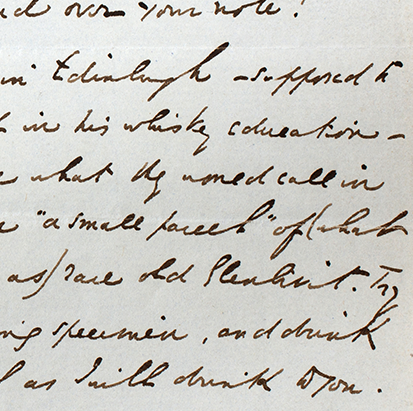 over your note!
in Edinburgh - supposed to
in his whiskey education -
what they would call in
"a small parcel" of (what
as) rare old Glenlivit. Try
specimen, and drink
as I will drink to you.